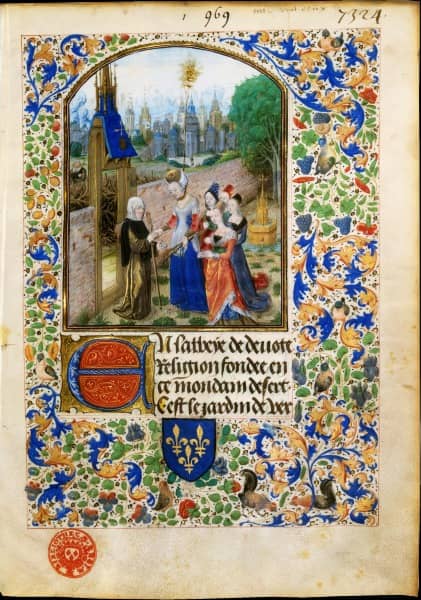 1 969 7324.
EN labbeye de deuote
Religion fondee en
ce mondain desert
Cest le jardin de ver